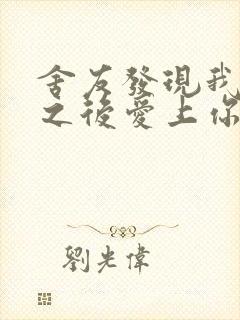 舍友發現我
之後愛上你
劉光偉